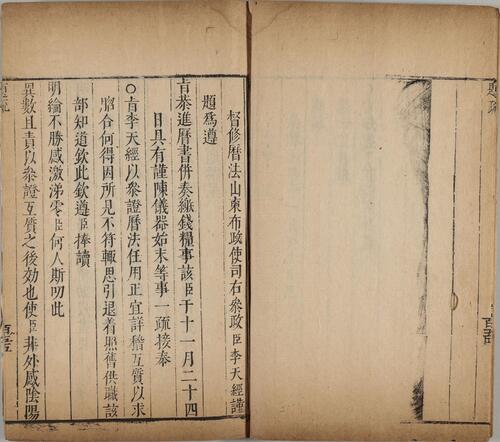 督修曆法山東布政使司右參政臣李天經謹
題爲遵
旨恭進曆書併奏繳錢糧事該臣于十一月二十四
日具有謹陳儀器始末等事一疏接奉
○旨李天經以參證曆法任用正宜詳稽互質以求
脗合何得因所見不符輒思引退着照舊供職該
部知道欽此欽遵臣捧讀
明綸不勝感激涕零臣何人斯叨此
異數且責以參證互質之後効也使臣非外感陰陽